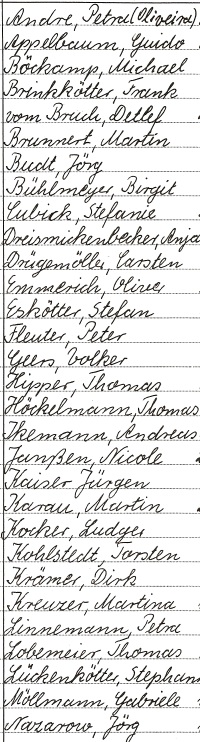 Andre, Petra (Oliveira)
Appelbaum, Guido
Böckamp, Michael
Brinkkötter, Frank
vom Bruch, Detlef
Brunnert, Martin
Budt, Jörg
Bühlmeyer, Birgit
Cubick, Stefanie
Dreismickenbecker, Anja
Drügemöller, Carsten
Emmerich, Oliver
Eskötter, Stefan
Fleuter, Peter
Geers, Volker
Hipper, Thomas
Höckelmann, Thomas
Ikemann, Andreas
Janßen, Nicole
Kaiser Jürgen
Karau, Martin
Kocker, Ludger
Kohlstedt, Torsten
Krämer, Dirk
Kreuzer, Martina
Linnemann, Petra
Lobemeier, Thomas
Lückenkötter, Stephan
Möllmann, Gabriele
Nazarow, Jörg